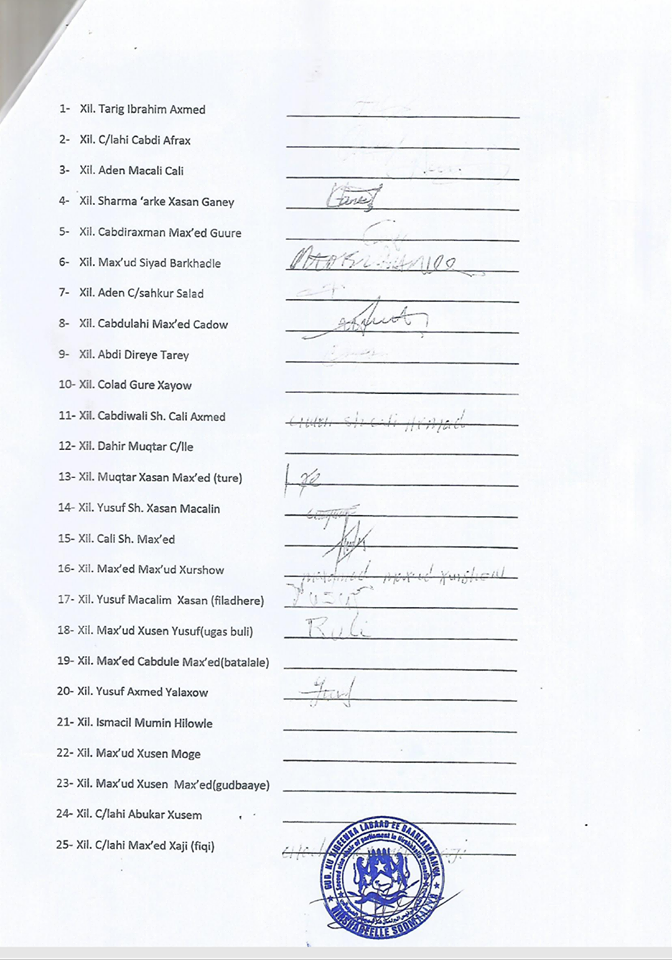 1- Xil. Tarig Ibrahim Axmed
2- Xil. C/lahi Cabdi Afrax
3- Xil. Aden Macali Cali
4- Xil. Sharma ‘arke Xasan Ganey
5- Xil. Cabdiraxman Max’ed Guure
6- Xil. Max’ud Siyad Barkhadle
7- Xil. Aden C/sahkur Salad
8- Xil. Cabdulahi Max’ed Cadow
9- Xil. Abdi Direye Tarey
10- Xil. Colad Gure Xayow
11- Xil. Cabdiwali Sh. Cali Axmed
12- Xil. Dahir Muqtar C/lle
13- Xil. Muqtar Xasan Max’ed (ture)
14- Xil. Yusuf Sh. Xasan Macalin
15- Xil. Cali Sh. Max’ed
16- Xil. Max’ed Max’ud Xurshow
17- Xil. Yusuf Macalim Xasan (filadhere)
18- Xil. Max’ud Xusen Yusuf(ugas buli) Ruli
19- Xil. Max’ed Cabdule Max’ed(batalale)
20- Xil. Yusuf Axmed Yalaxow
21- Xil. Ismacil Mumin Hilowle
22- Xil. Max’ud Xusen Moge
23- Xil. Max’ud Xusen Max’ed(gudbaaye)
24- Xil. C/lahi Abukar Xusem
25- Xil. C/lahi Max’ed Xaji (fiqi)
GUD. KU XIGEENKA LABAAD EE BAARLAMAANKA
HIRSHABEELLE SOOMAALIYA